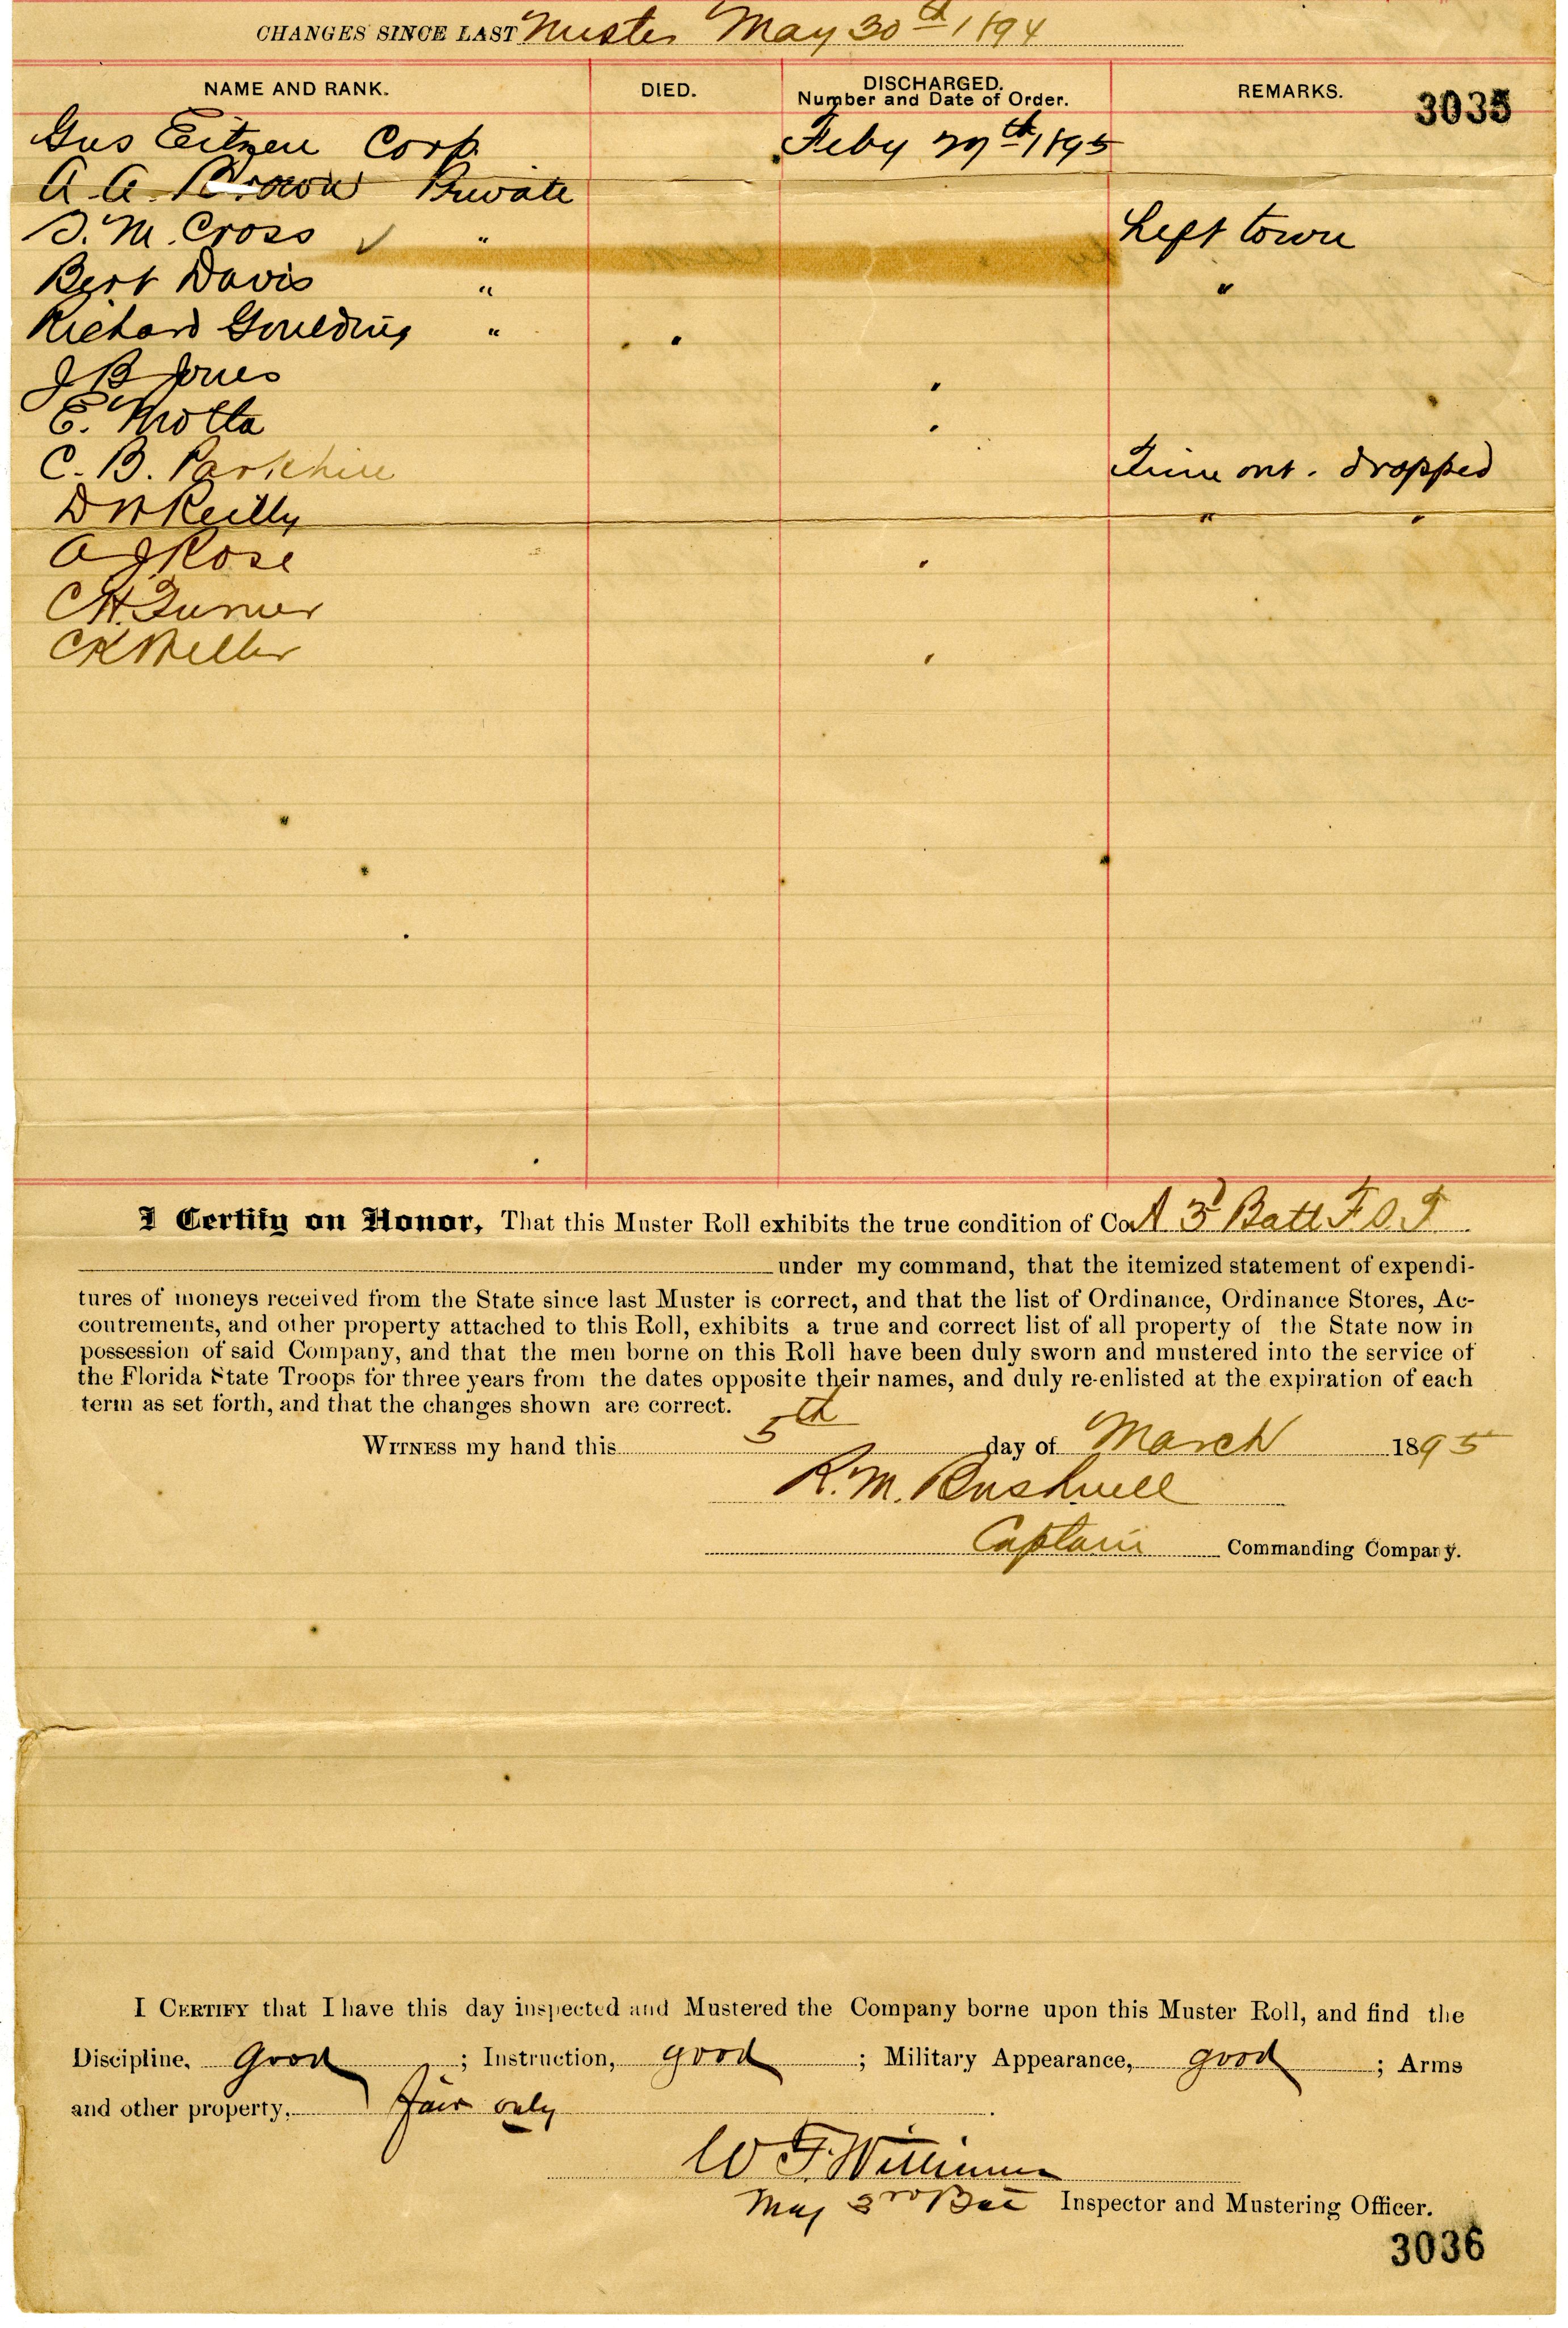 CHANGES SINCE LAST Muster May 30th 1894
NAME AND RANK. DIED. DISCHARGED. Number and Date of Order. REMARKS. 3035
Gus Eitzen Corp. Feby 27th 1895
A. A. Brown Private
S. M. Cross ✓ " Left town
Bert Davis " "
Richard Goulding "
J B Jones
E. Motta
C. B. Parkhill Time out. dropped
D W Reilly " "
A J Rose
C H. Turner
C K Weller
I Certify on Honor, That this Muster Roll exhibits the true condition of Co. A 3d Batt F. S. T.
under my command, that the itemized statement of expendi-
tures of moneys received from the State since last Muster is correct, and that the list of Ordinance, Ordinance Stores, Ac-
coutrements, and other property attached to this Roll, exhibits a true and correct list of all property of the State now in
possession of said Company, and that the men borne on this Roll have been duly sworn and mustered into the service of
the Florida State Troops for three years from the dates opposite their names, and duly re-enlisted at the expiration of each
term as set forth, and that the changes shown are correct.
WITNESS my hand this 5th day of March 1895
R. M. Bushnell
Captain Commanding Company.
I CERTIFY that I have this day inspected and Mustered the Company borne upon this Muster Roll, and find the
Discipline, good ; Instruction, good ; Military Appearance, good ; Arms
and other property, fair only
W F. Williams
Maj 3rd Bat Inspector and Mustering Officer.
3036